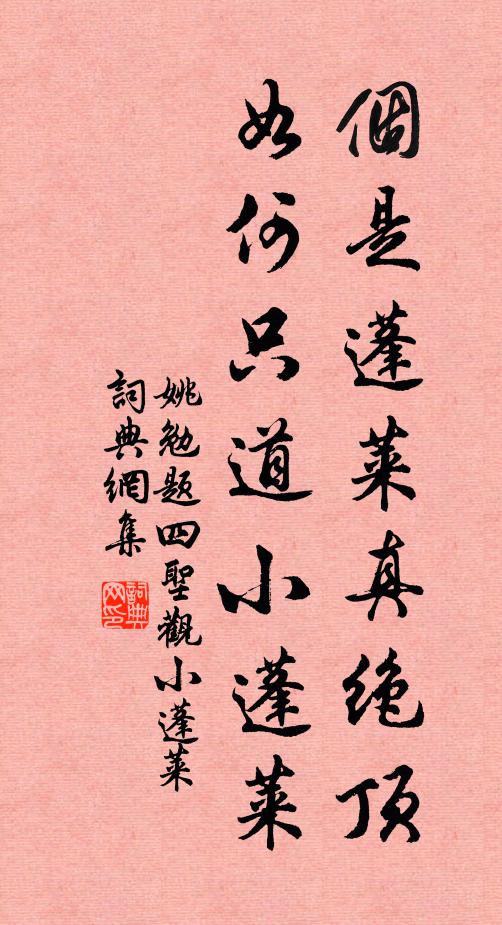 個是蓬萊真绝顶
如何只道小蓬萊
姚勉题四聖觀小蓬萊
詞典網集
詞典网印